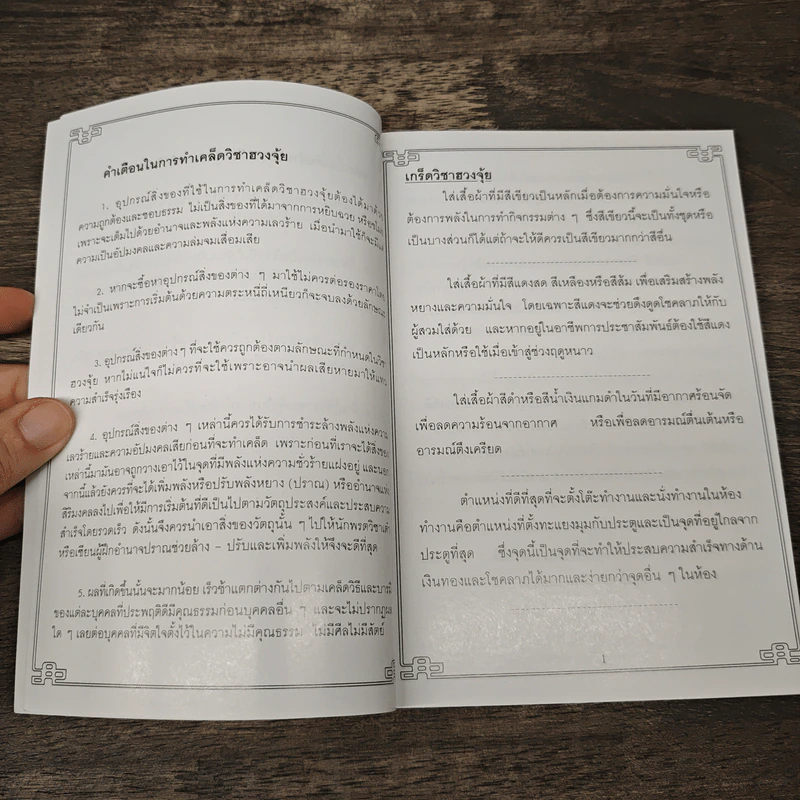 คำเตือนในการทำเคล็ดวิชาฮวงจุ้ย
1. อุปกรณ์สิ่งของที่ใช้ในการทำเคล็ดวิชาฮวงจุ้ยต้องได้มาด้วย
ความถูกต้องและชอบธรรม ไม่เป็นสิ่งของที่ได้มาจากการหยิบฉวย
เพราะจะเต็มไปด้วยอำนาจและพลังแห่งความเลวร้าย เมื่อนำมาใช้ก็จะ
ความเป็นอัปมงคลและความล่มจมเสื่อมเสีย
2. หากจะซื้อหาอุปกรณ์สิ่งของต่าง ๆ มาใช้ไม่ควรต่อรองราคา
ไม่จำเป็นเพราะการเริ่มต้นด้วยความตระหนี่ถี่เหนียวก็จะจบลงด้วยลักษณะ
เดียวกัน
3. อุปกรณ์สิ่งของต่างๆ ที่จะใช้ควรถูกต้องตามลักษณะที่กำหนดใน
ฮวงจุ้ย หากไม่แน่ใจก็ไม่ควรที่จะใช้เพราะอาจนำผลเสียหายมาให้
ความสำเร็จรุ่งเรือง
4. อุปกรณ์สิ่งของต่าง ๆ เหล่านี้ควรได้รับการชำระล้างพลังแห่งความ
เลวร้ายและความอัปมงคลเสียก่อนที่จะทำเคล็ด เพราะก่อนที่เราจะได้สิ่งของ
เหล่านี้มามันอาจถูกวางเอาไว้ในจุดที่มีพลังแห่งความชั่วร้ายแฝงอยู่ และนอก
จากนี้แล้วยังควรที่จะได้เพิ่มพลังหรือปรับพลังหยาง (ปราณ) หรืออำนาจแห่ง
สิริมงคลลงไปเพื่อให้มีการเริ่มต้นที่ดีเป็นไปตามวัตถุประสงค์และประสบความ
สำเร็จโดยรวดเร็ว ดังนั้นจึงควรนำเอาสิ่งของวัตถุนั้น ๆ ไปให้นักพรตวิชาเต๋า
หรือเซียนผู้ฝึกอำนาจปราณช่วยล้าง - ปรับและเพิ่มพลังให้จึงจะดีที่สุด
5. ผลที่เกิดขึ้นนั้นจะมากน้อย เร็วช้าแตกต่างกันไปตามเคล็ดวิธีและบารมี
ของแต่ละบุคคลที่ประพฤติดีมีคุณธรรมก่อนบุคคลอื่น ๆ และจะไม่ปรากฏผล
ใด ๆ เลยต่อบุคคลที่มีจิตใจตั้งไว้ในความไม่มีคุณธรรม ไม่มีศีลไม่มีสัตย์
เกร็ดวิชาฮวงจุ้ย
ใส่เสื้อผ้าที่มีสีเขียวเป็นหลักเมื่อต้องการความมั่นใจหรือ
ต้องการพลังในการทำกิจกรรมต่าง ๆ ซึ่งสีเขียวนี้จะเป็นทั้งชุดหรือ
เป็นบางส่วนก็ได้แต่ถ้าจะให้ดีควรเป็นสีเขียวมากกว่าสีอื่น
ใส่เสื้อผ้าที่มีสีแดงสด สีเหลืองหรือสีส้ม เพื่อเสริมสร้างพลัง
หยางและความมั่นใจ โดยเฉพาะสีแดงจะช่วยดึงดูดโชคลาภให้กับ
ผู้สวมใส่ด้วย และหากอยู่ในอาชีพการประชาสัมพันธ์ต้องใช้สีแดง
เป็นหลักหรือใช้เมื่อเข้าสู่ช่วงฤดูหนาว
ใส่เสื้อผ้าสีดำหรือสีน้ำเงินแกมดำในวันที่มีอากาศร้อนจัด
เพื่อลดความร้อนจากอากาศ หรือเพื่อลดอารมณ์ตื่นเต้นหรือ
อารมณ์ตึงเครียด
ตำแหน่งที่ดีที่สุดที่จะตั้งโต๊ะทำงานและนั่งทำงานในห้อง
ทำงานคือตำแหน่งที่ตั้งทะแยงมุมกับประตูและเป็นจุดที่อยู่ไกลจาก
ประตูที่สุด ซึ่งจุดนี้เป็นจุดที่จะทำให้ประสบความสำเร็จทางด้าน
เงินทองและโชคลาภได้มากและง่ายกว่าจุดอื่น ๆ ในห้อง
1